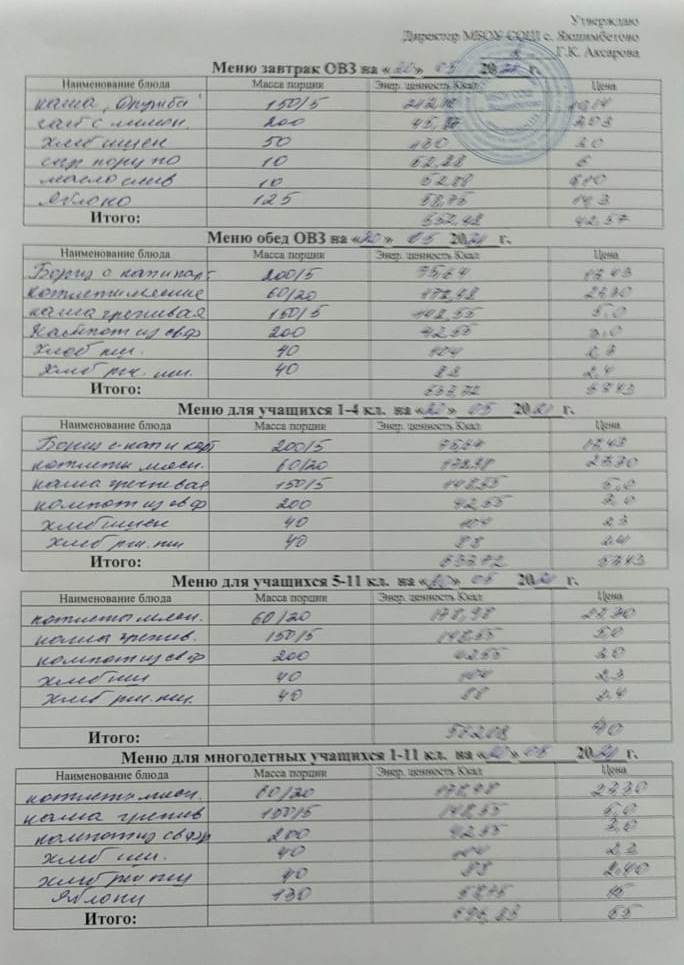 Утверждаю
Директор МБОУ СОШ с. Яхшимбетово
Г.К. Аксарова
Меню завтрак ОВЗ на «20» 05 2021 г.
Наименование блюда Масса порции Энер. ценность Ккал Цена
каша "Дружба" 150/5 212,12
чай с лимон. 200
хлеб пшен 50 130
сыр порц 10 62,28 6
масло слив 10 52,88
Яблоко 125 58,75 14,3
Итого: 552,42 42,57
Меню обед ОВЗ на «20» 05 2021 г.
Наименование блюда Масса порции Энер. ценность Ккал Цена
Борщ с кап и карт 200/5 75,64 17,43
котлеты мясные 60/20 178,98 27,30
каша гречневая 150/5 148,55 5,0
Компот из свф 200 42,55 3,0
Хлеб пш. 40 104 2,3
Хлеб рж. пш. 40 88 2,4
Итого: 637,72 57,43
Меню для учащихся 1-4 кл. на «20» 05 2021 г.
Наименование блюда Масса порции Энер. ценность Ккал Цена
Борщ с кап и карт 200/5 75,64 17,43
котлеты мясн. 60/20 178,98 27,30
каша гречневая 150/5 148,55 5,0
компот из свф 200 42,55 3,0
хлеб пшен 40 104 2,3
хлеб рж. пш 40 88 2,4
Итого: 637,72 57,43
Меню для учащихся 5-11 кл. на «20» 05 2021 г.
Наименование блюда Масса порции Энер. ценность Ккал Цена
котлеты мясн. 60/20 178,98 27,30
каша гречнев. 150/5 148,55 5,0
компот из свф 200 42,55 3,0
хлеб пш 40 104 2,3
хлеб рж. пш. 40 88 2,4
Итого: 562,08 40
Меню для многодетных учащихся 1-11 кл. на «20» 05 2021 г.
Наименование блюда Масса порции Энер. ценность Ккал Цена
котлеты мясн. 60/20 178,98 27,30
каша гречнев 150/5 148,55 5,0
компот из свф 200 42,55 3,0
хлеб пш. 40 104 2,3
хлеб рж пш 40 88 2,40
Яблоки 130 58,75 15
Итого: 620,83 55